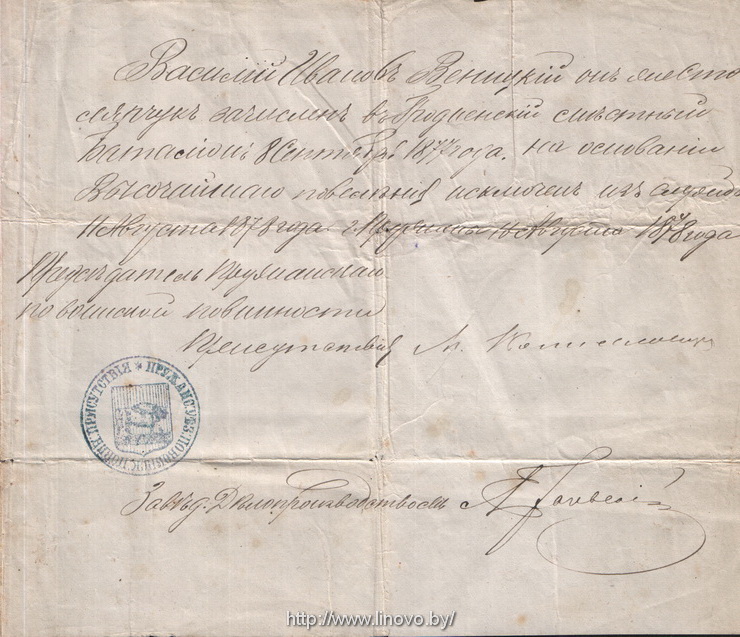 Василій Ивановъ Веницкій онъ же Сто
лярчукъ зачисленъ въ Гродненскій мѣстный
баталіонъ 8 Сентября 1877 года. на основаніи
Высочайшаго повелѣнія исключенъ изъ службы
11 Августа 1878 года г. Пружаны 16 Августа 1878 года
Предсѣдатель Пружанскаго
по воинской повинности
Присутствія
ПРУЖАНС. УѢЗ. ПО ВОИНСК. ПОВИН. ПРИСУТСТВІЯ
Завѣд. Дѣлопроизводствомъ
http://www.linovo.by/